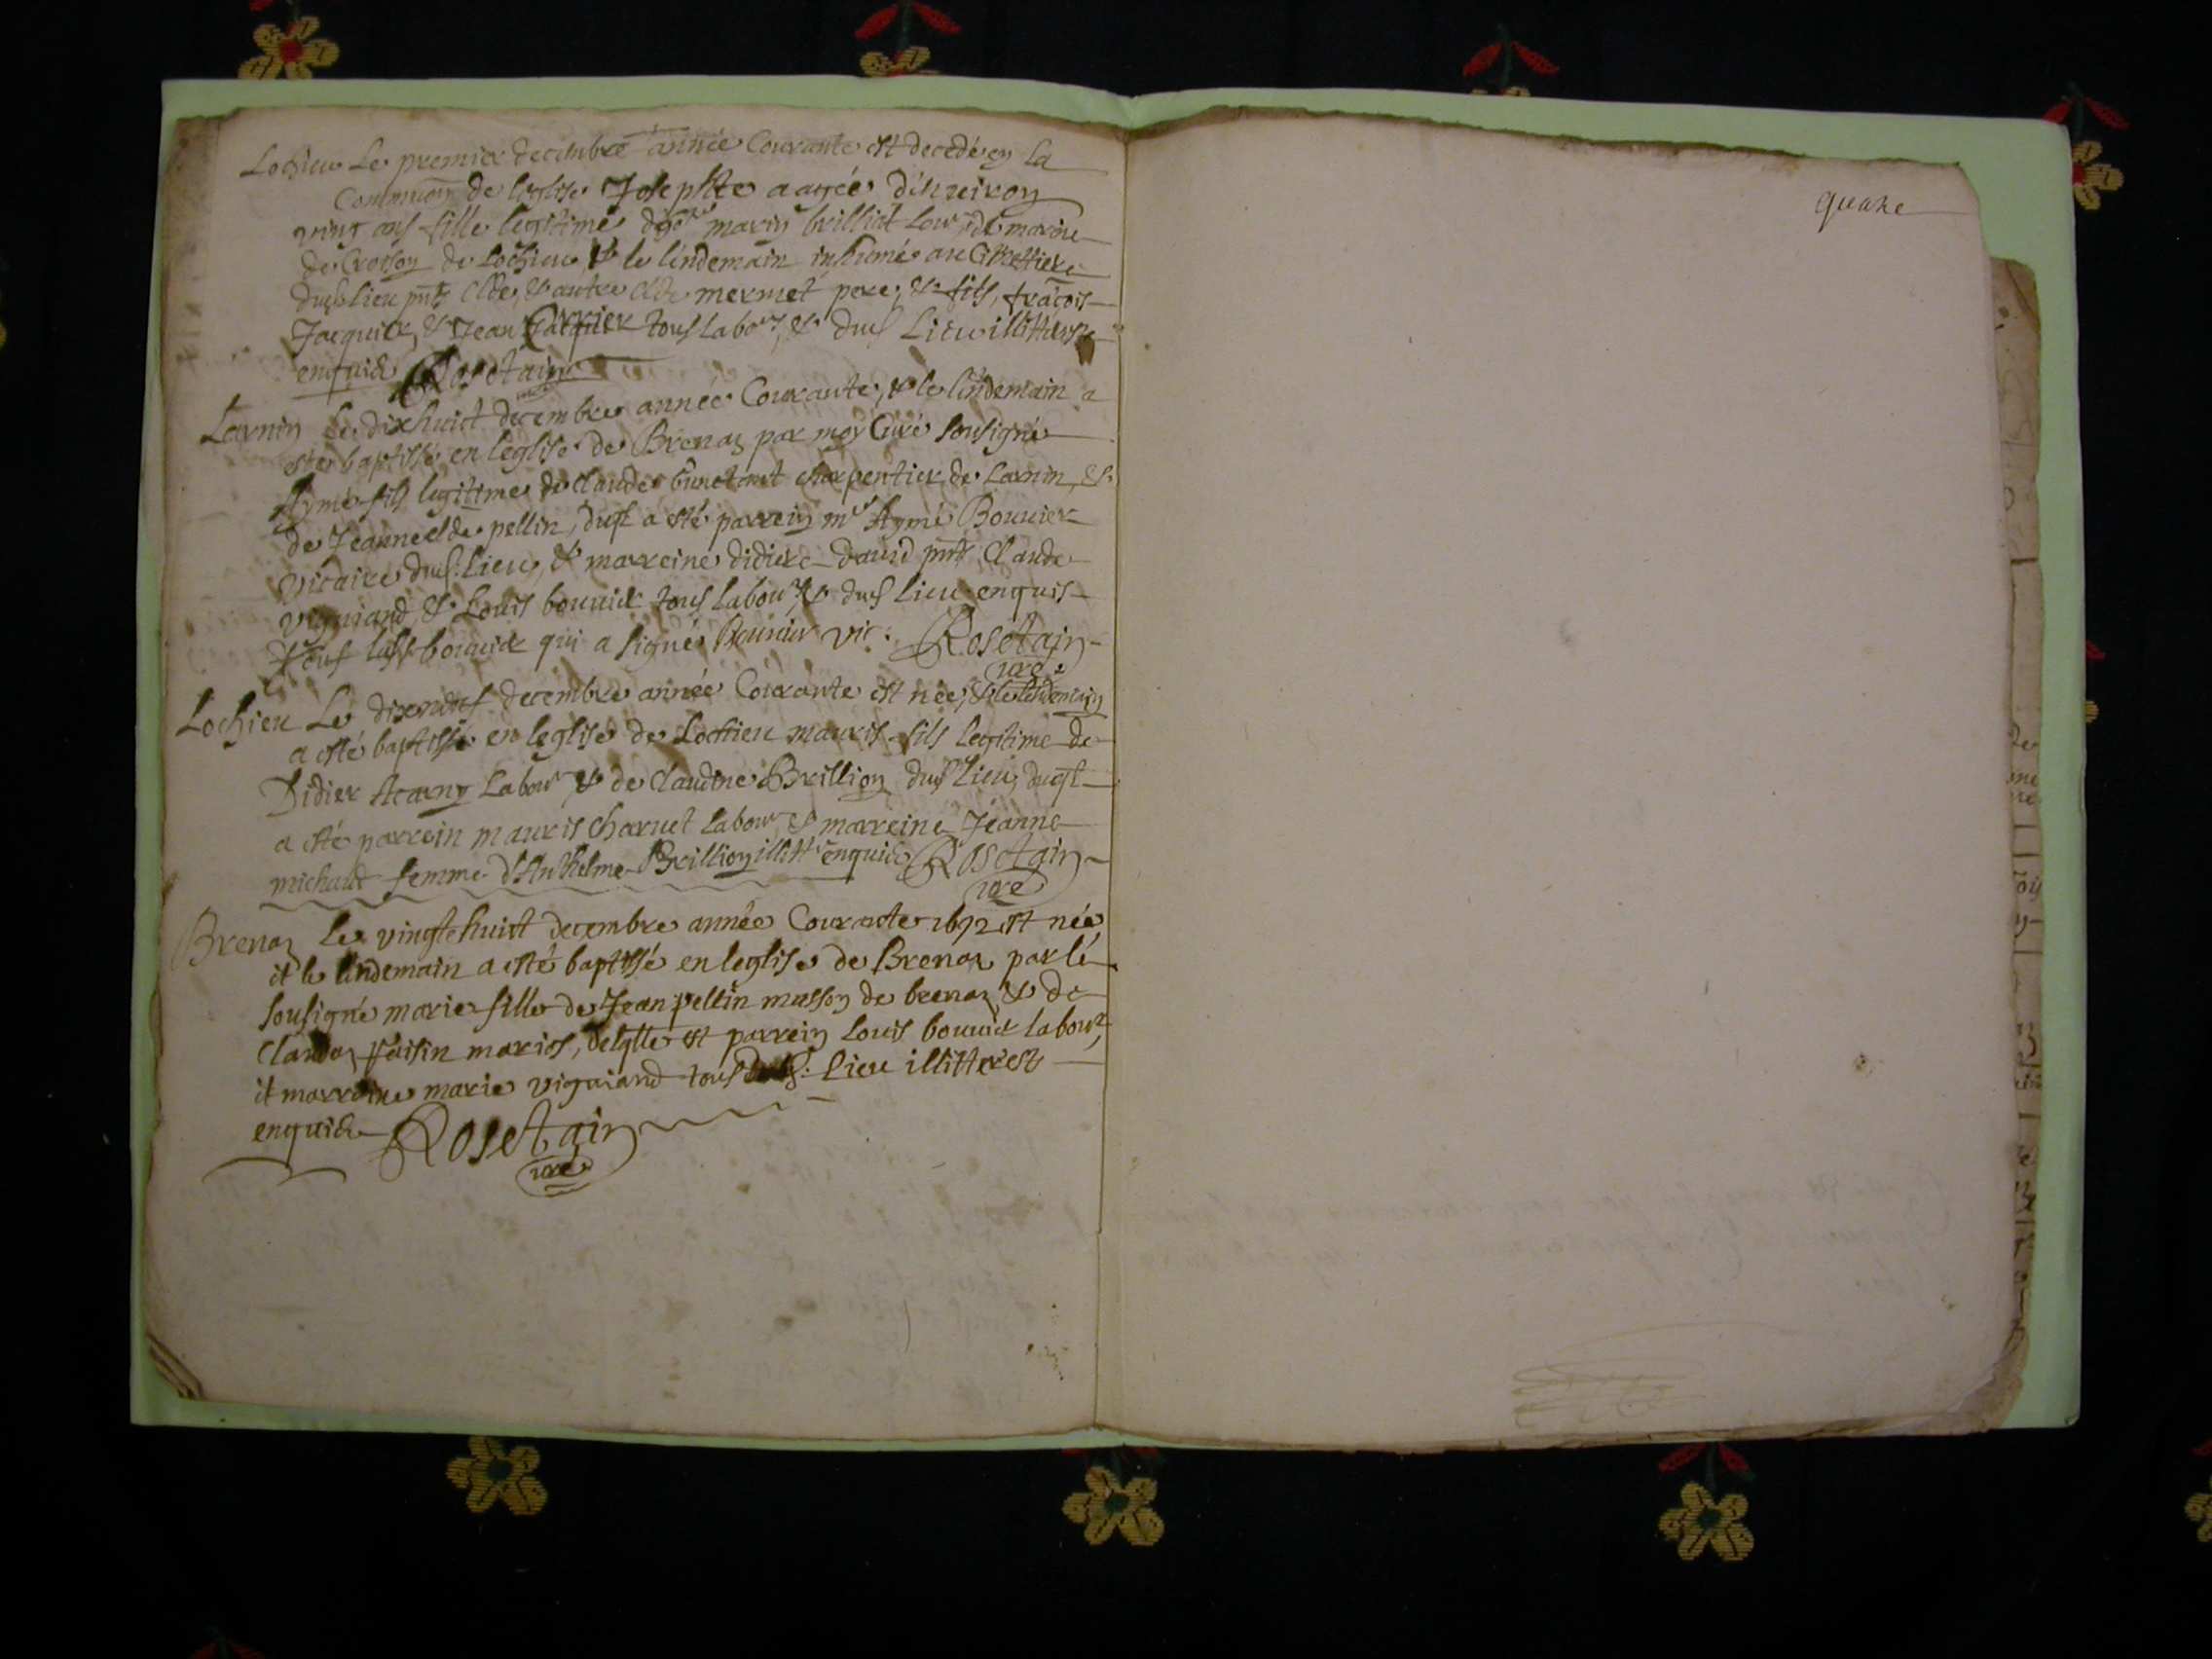 Lochieu Le premier decembre année Courante est decedé en la
Communion de leglise Josephte aagée d'enveiron
vint ans fille legitime marin brilliat
de Croison de Lochieu & le lendemain inhumé au Cimettiere
dud lieu pnts Clde, & autre Clde mermet pere, & fils, fracois
Jacquier, & Jean Carrier tous labours & dud Lieu illitterés
enquis Rosetain
Larnin Le dixhuict decembre année Courante, & le lendemain a
esté baptisé en leglise de Brenaz par moy Curé sousigné
Aymé fils legitime de Claude charpentier de Larnin, &
de Jeanne clde pellin, duql a esté parrein mre Aymé Bouvier
vicaire dud: lieu, & marreine didiere David pnts Claude
viguiand, & Louis bouvier tous labours & dud lieu enquis
sauf bouvier qui a signé Bouvier vic: Rosetain
curé
Lochieu Le dixneuf decembre année Courante est née, & le lendemain
a esté baptisé en leglise de Lochieu mauris fils legitime de
Didier Labour & de Claudine Brillion dud Lieu, duql
a esté parrein mauris charvet labour & marreine Jeanne
michaud femme d'Anthelme Brillion illitt enquis Rosetain
curé
Brenaz Le vingtehuict decembre année Courante 1692 est née
et le lendemain a esté baptisé en leglise de Brenaz par le
sousigné marie fille de Jean pellin masson de brenaz & de
Clauda maries, delqlle est parrein Louis bouvier labour,
et marreine marie viguiand tous dud: Lieu illitterés
enquis Rosetain
curé
quatre